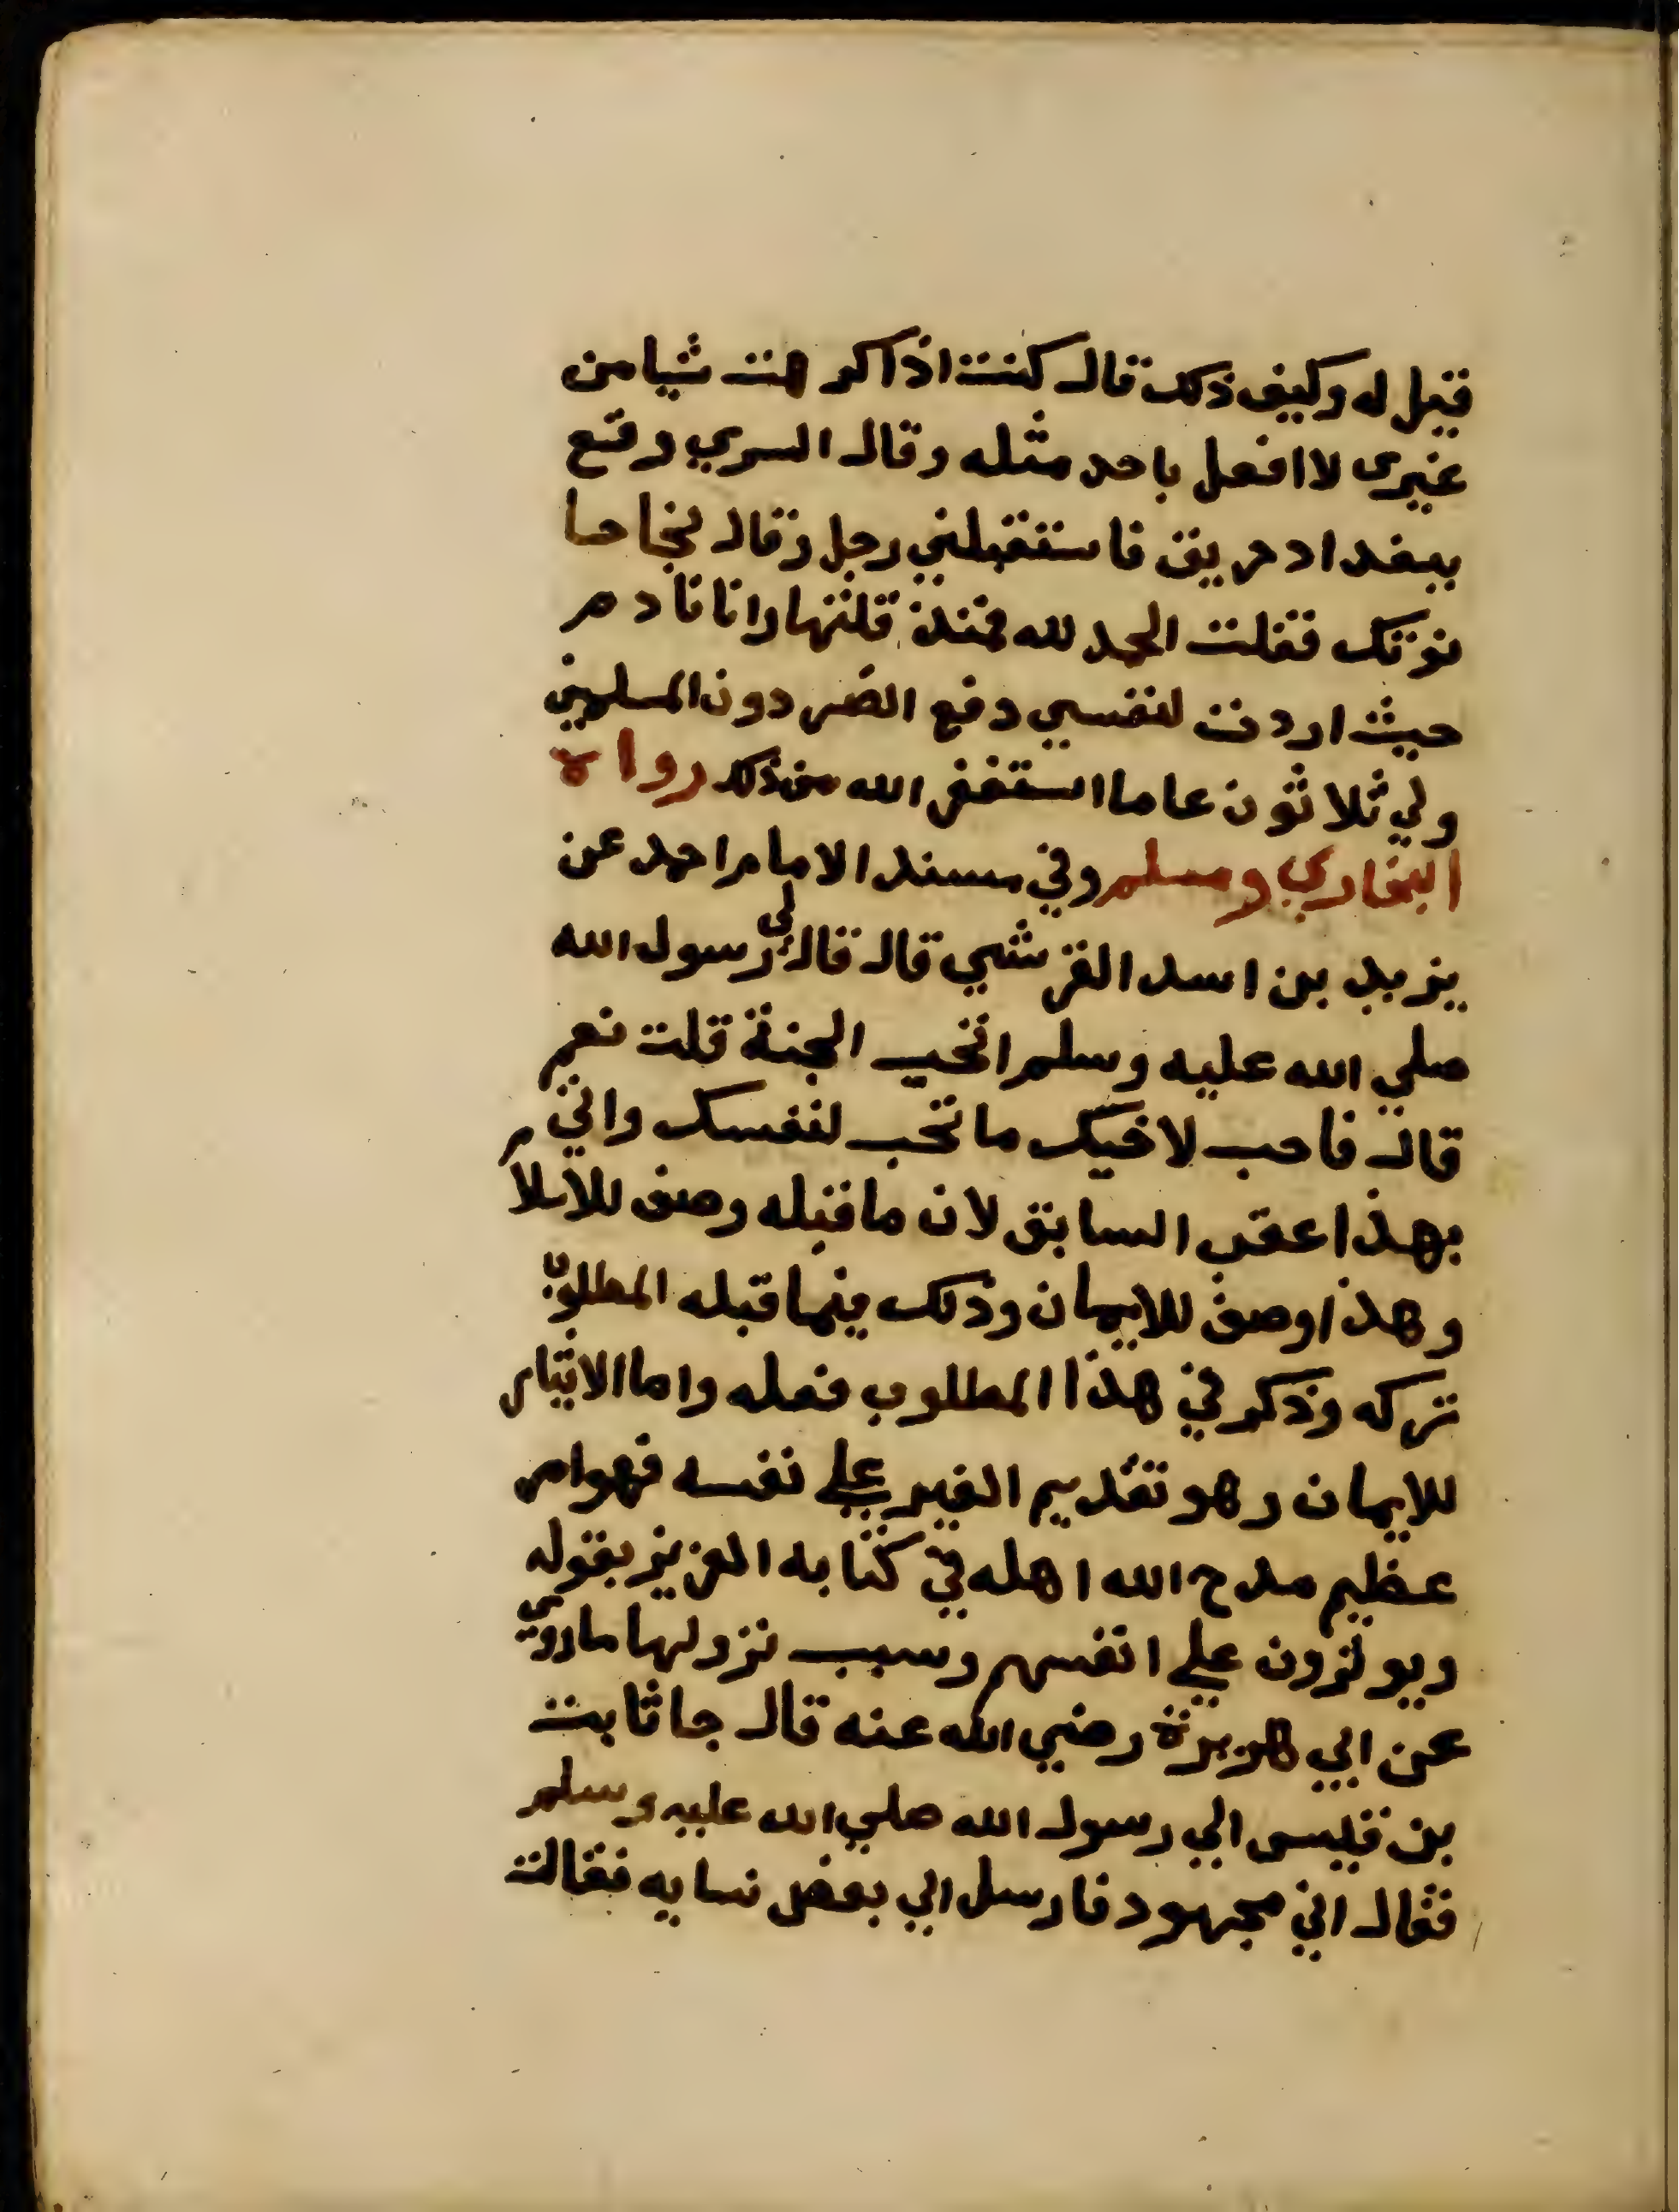 فقيل له وكيف ذلك قال كنت اذا كرهت شيا من
غيرى لا افعل باحد مثله وقال السري وقع
ببغداد حريق فاستقبلني رجل وقال نجا حا
نوتك فقلت الحمد لله فمنذ قلتها وانا نادم
حيث اردت لنفسي دفع الضر دون المسلمين
ولي ثلاثون عاما استغفر الله من ذلك رواه
البخاري ومسلم وفي مسند الامام احمد عن
يزيد بن اسد القرشي قال قال لى رسول الله
صلي الله عليه وسلم اتحب الجنة قلت نعم
قال فاحب لاخيك ما تحب لنفسك واتي
بهذا عقب السابق لان ما قبله وصف للاسلام
وهذا وصف للايمان وذلك فيما قبله المطلوب
تركه وذكر في هذا المطلوب فعله واما الايثار
للايمان وهو تقديم الغير علي نفسه فهو امر
عظيم مدح الله اهله في كتابه العزيز بقوله
ويوثرون علي انفسهم وسبب نزولها ما روي
عن ابي هريرة رضي الله عنه قال جا ثابت
بن قيس الي رسول الله صلي الله عليه وسلم
فقال اني مجهود فارسل الي بعض نسايه فقالت